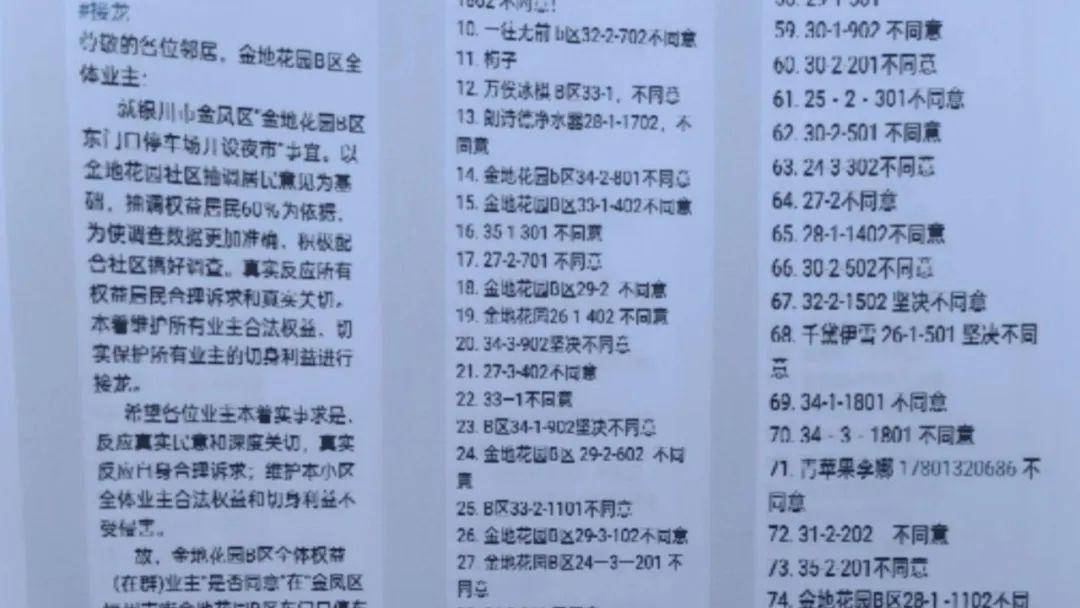 #接龙
尊敬的各位邻居，金地花园B区全
体业主：
就银川市金凤区"金地花园B区
东门口停车场开设夜市"事宜。以
金地花园社区抽调居民意见为基
础，抽调权益居民60%为依据，
为使调查数据更加准确、积极配
合社区搞好调查。真实反应所有
权益居民合理诉求和真实关切。
本着维护所有业主合法权益、切
实保护所有业主的切身利益进行
接龙。
希望各位业主本着实事求是、
反应真实民意和深度关切，真实
反应自身合理诉求；维护本小区
全体业主合法权益和切身利益不
受侵害。
故，金地花园B区全体权益
(在群)业主"是否同意"在"金凤区
1802 不同意！
10. 一往无前 b区32-2-702不同意
11. 柯子
12. 万俊冰棋 B区33-1，不同意
13. 朗诗德净水器28-1-1702，不
同意
14. 金地花园b区34-2-801不同意
15. 金地花园B区33-1-402不同意
16. 35 1 301 不同意
17. 27-2-701 不同意
18. 金地花园B区29-2 不同意
19. 金地花园26 1 402 不同意
20. 34-3-902坚决不同意
21. 27-3-402不同意
22. 33—1不同意
23. B区34-1-902坚决不同意
24. 金地花园B区 29-2-602 不同
意
25. B区33-2-1101不同意
26. 金地花园B区29-3-102不同意
27. 金地花园B区24—3—201 不
同意
59. 30-1-902 不同意
60. 30-2-201不同意
61. 25 - 2 - 301不同意
62. 30-2-501 不同意
63. 24-3-302不同意
64. 27-2不同意
65. 28-1-1402不同意
66. 30-2-502不同意
67. 32-2-1502 坚决不同意
68. 千黛伊雪 26-1-501 坚决不同
意
69. 34-1-1801 不同意
70. 34 - 3 - 1801 不同意
71. 青苹果李娜 17801320686 不
同意
72. 31-2-202 不同意
73. 35-2-201不同意
74. 金地花园B区28-1 -1102不同